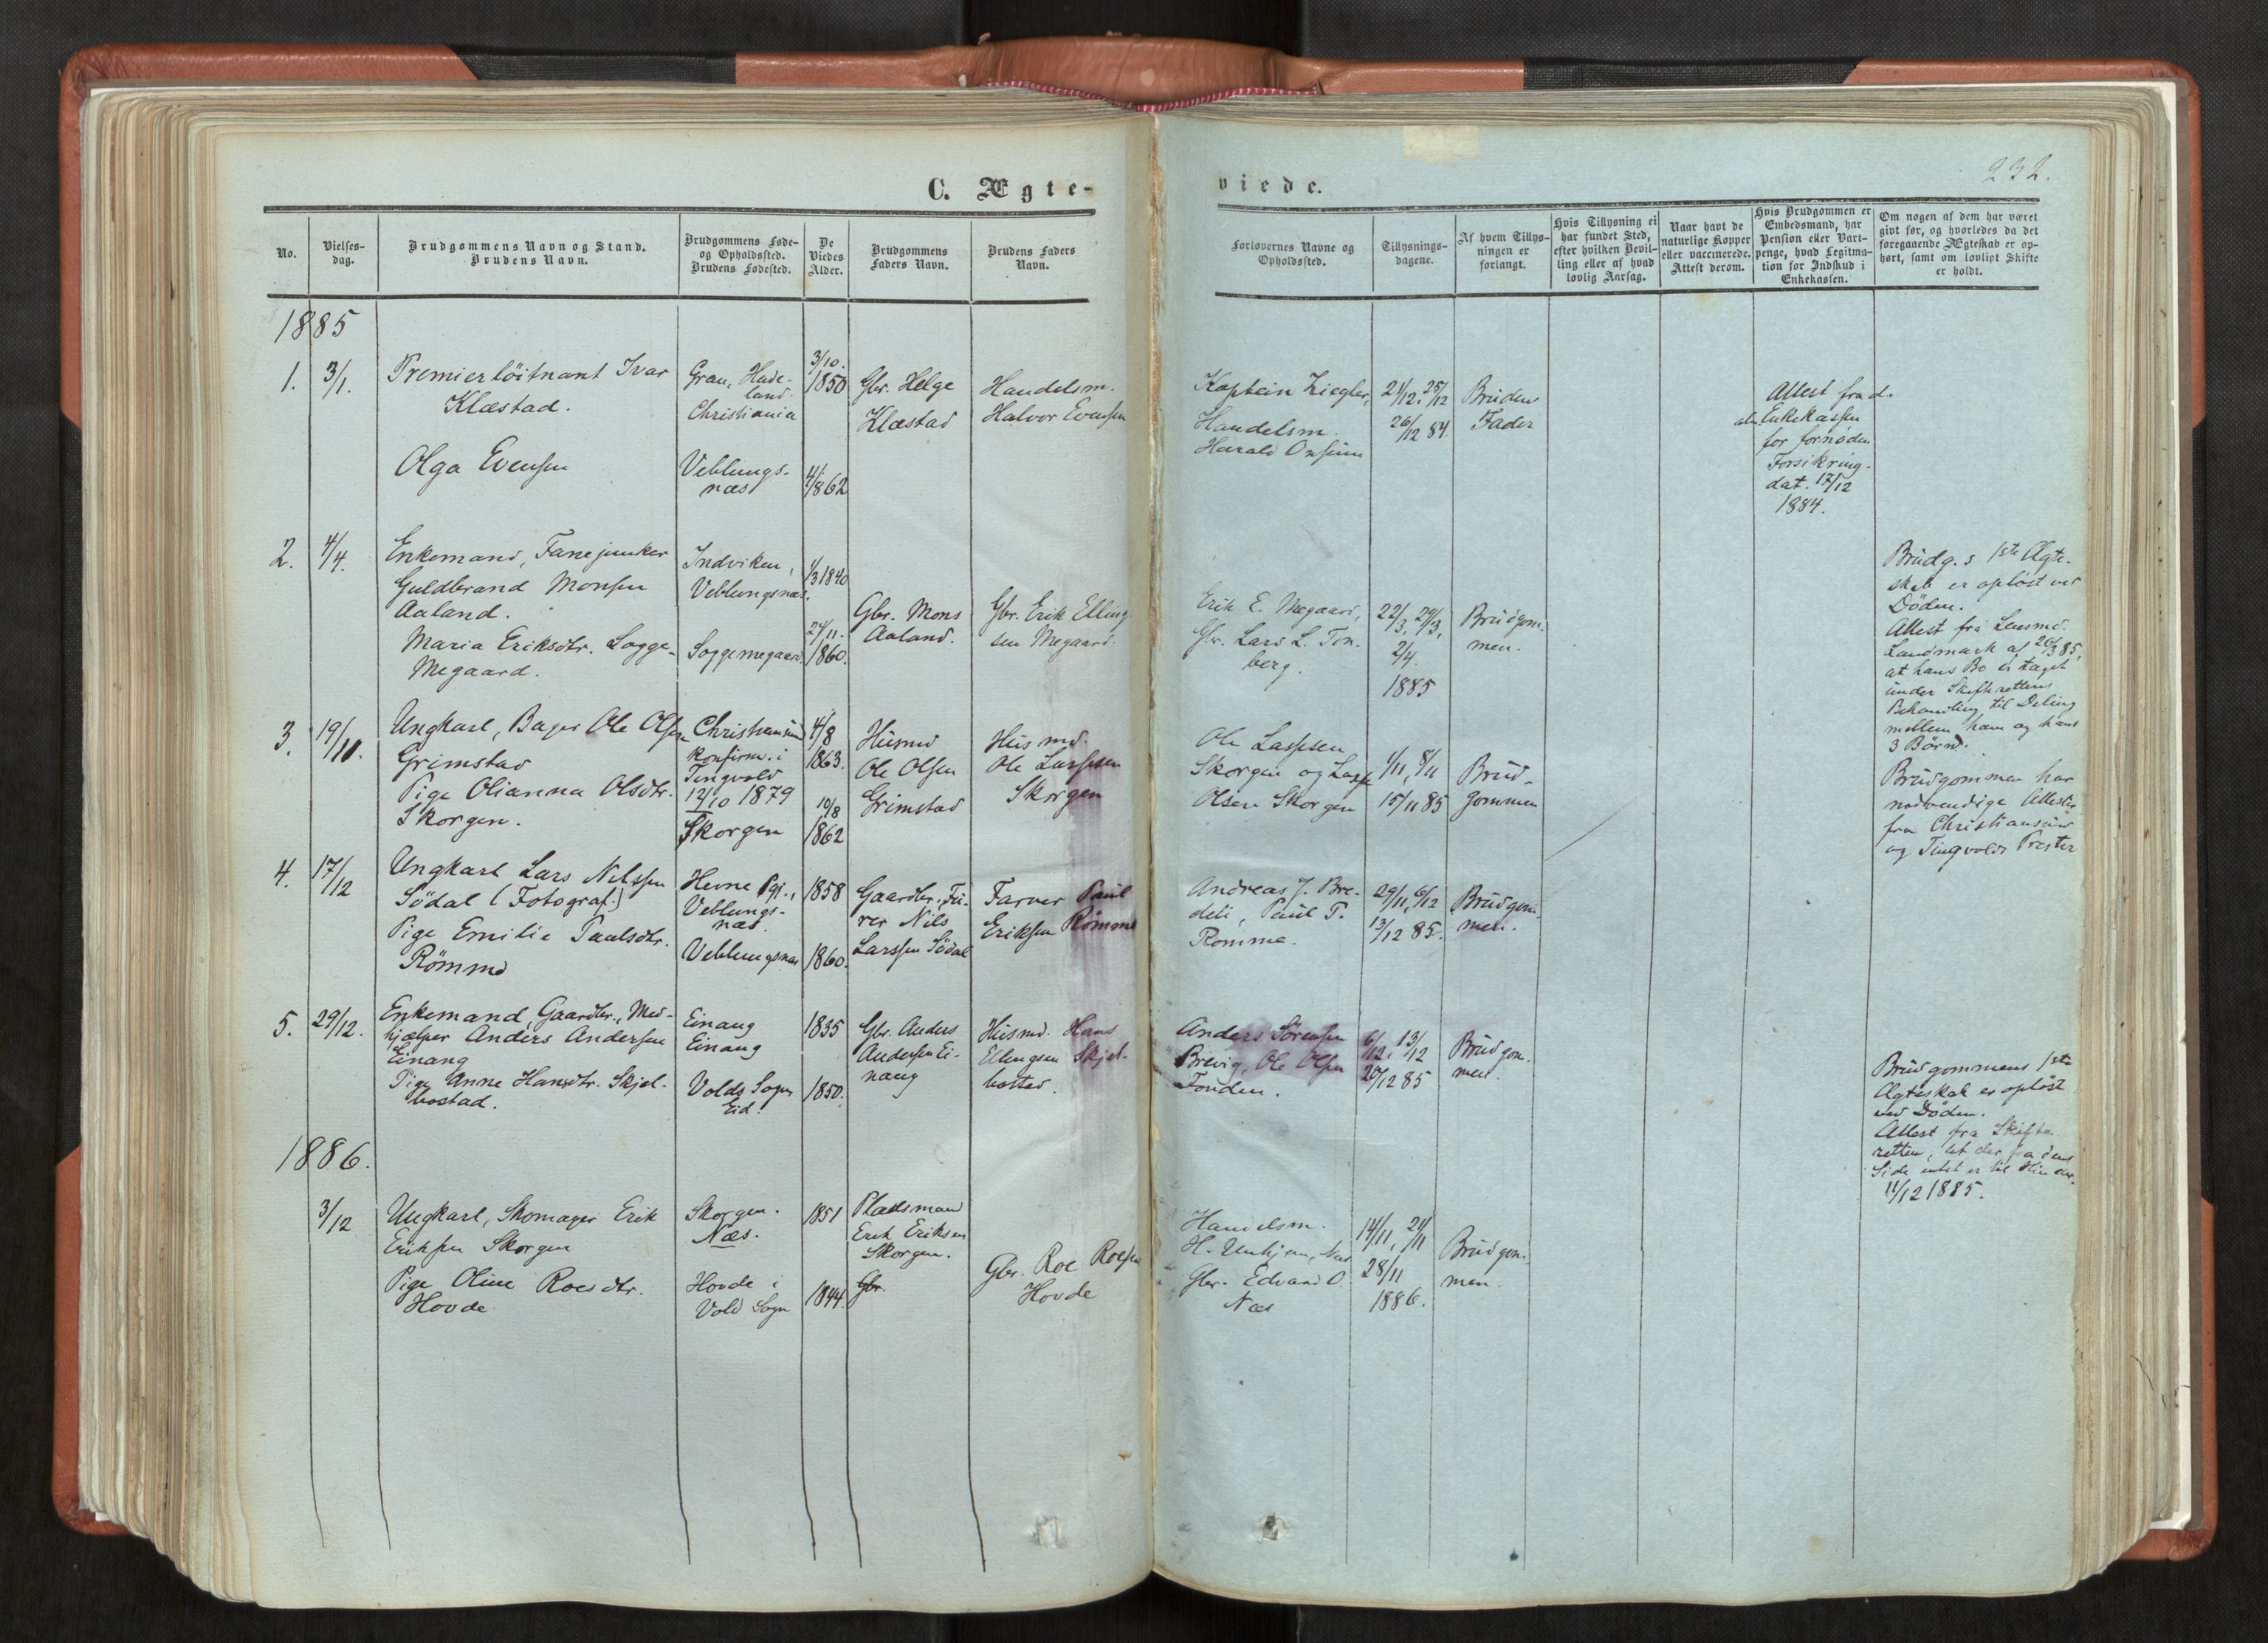 C. Ægte-
No.
Vielses-
dag.
Brudgommens Navn og Stand.
Brudens Navn.
Brudgommens Føde-
og Opholdssted.
Brudens Fødested.
De
Viedes
Alder.
Brudgommens
Faders Navn.
Brudens Faders
Navn.
1885
1. 3/1.
Premierlöitnant Ivar
Klæstad.
Olga Evensen
Gran, Hade-
land
Christiania
Veblungs-
næs
3/10.
1850
1862
Gbr. Helge
Klæstad
Handelsm.
Halvor Evensen
2. 4/4.
Enkemand, Fanejunker
Guldbrand Monsen
Aaland.
Maria Eriksdtr. Sogge-
Megaard.
Indviken,
Veblungsnæs.
Soggemegaard.
1/3 1840
24/11.
1860.
Gbr. Mons
Aaland.
Gbr. Erik Elling
sen Megaard.
3. 19/11.
Ungkarl, Bager Ole Olsen
Grimstad
Pige Olianna Olsdtr.
Skorgen.
Christiansund
konfirm. i
Tingvold
12/10 1879
Skorgen
4/8
1863.
10/8
1862
Husmd
Ole Olsen
Grimstad
Husmd.
Ole Lassesen
Skorgen
4. 17/12
Ungkarl Lars Nilssen
Södal (Fotograf.)
Pige Emilie Paulsdtr.
Rømmo
Hevne Pgj.,
Veblungs-
næs.
Veblungsnæs
1858
1860.
Gaardbr., Fu-
rer Nils
Larssen Södal
Farver Paul
Eriksen Rømme
5. 29/12.
Enkemand, Gaardbr., Med-
hjælper Anders Andersen
Einang
Pige Anne Hansdtr. Skjel-
bostad.
Einang
Einang
Volds Sogn
Eid.
1835
1850.
Gbr. Anders
Andersen Ei-
nang
Husmd. Hans
Ellingsen Skjel-
bostad.
1886.
3/12
Ungkarl, Skomager Erik
Eriksen Skorgen
Pige Oline Roesdtr.
Hovde
Skorgen.
Næs.
Hovde i
Vold Sogn
1851
1844.
Pladsmand
Erik Eriksen
Skorgen.
Gbr.
Gbr. Roe Roesen
Hovde
viede.
232.
Forlovernes Navne og
Opholdssted.
Tillysnings-
dagene.
Af hvem Tillys-
ningen er
forlangt.
Hvis Tillysning ei
har fundet Sted,
efter hvilken Bevil-
ling eller af hvad
lovlig Aarsag.
Naar havt de
naturlige Kopper
eller vaccinerede.
Attest derom.
Hvis Brudgommen er
Embedsmand, har
Pension eller Vart-
penge, hvad Legitima-
tion for Indskud i
Enkekassen.
Om nogen af dem har været
givt før, og hvorledes da det
foregaaende Ægteskab er op-
hørt, samt om lovligt Skifte
er holdt.
Kaptein Ziegler,
Handelsm.
Harald Onsum
21/12, 25/12
26/12 84.
Brudens
Fader
Attest fra d.
alm. Enkekassen
for fornøden
Forsikring.
dat. 17/12
1884.
Erik E. Megaard,
Gbr. Lars L. Ton-
berg.
22/3, 29/3,
2/4.
1885
Brudgom-
men.
Brudg.s 1ste Ægte-
skab er opløst ved
Döden.
Attest fra Lensmd.
Landmark af 20/3 85,
at hans Bo er taget
under Skifterettens
Behandling til Deling
mellem ham og hans
3 Børn.
Ole Lassesen
Skorgen og Lasse
Olsen Skorgen
1/11, 8/11
15/11 85
Brud-
gommen
Brudgommen har
nødvendige Attester
fra Christiansund
og Tingvolds Prester
Andreas J. Bre-
deli, Paul P.
Rømme.
29/11, 6/12
13/12 85.
Brudgom-
men.
Anders Sørensen
Brevig, Ole Olsen
Fonden.
6/12, 13/12
20/12 85
Brudgom-
men.
Brudgommens 1ste
Ægteskab er opløst
ved Döden.
Attest fra Skifte-
retten, at der fra dens
Side intet er til Hinder.
11/12 1885.
Handelsm.
H. Unhjem, Næs
Gbr. Edvard O.
Næs
14/11, 21/11
28/11
1886.
Brudgom-
men.